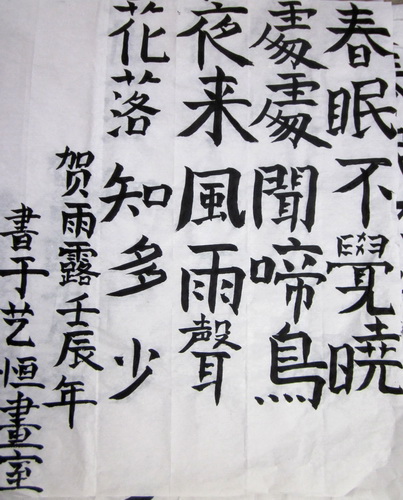 春眠不覺曉
處處聞啼鳥
夜来風雨聲
花落知多少
贺雨露壬辰年
書于艺恒畫室